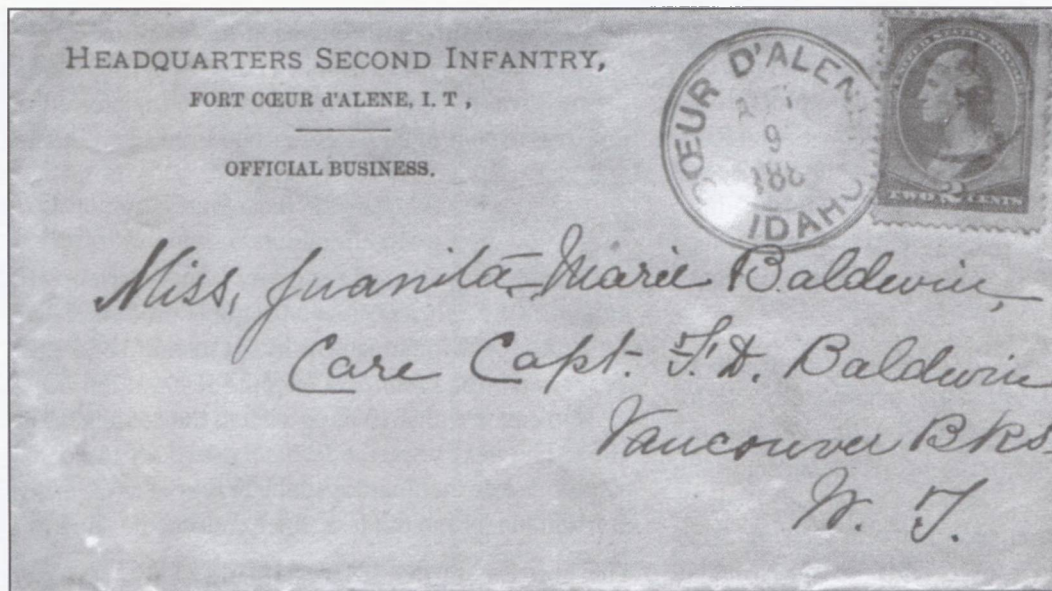 HEADQUARTERS SECOND INFANTRY,
FORT CŒUR d'ALENE, I. T,
OFFICIAL BUSINESS.
CŒUR D'ALEN
9
188
IDAHO
UNITED STATES POSTAGE
TWO 2 CENTS
Miss, Juanita Marie Baldwin,
Care Capt. F. D. Baldwin
Vancouver Bks.
W. T.